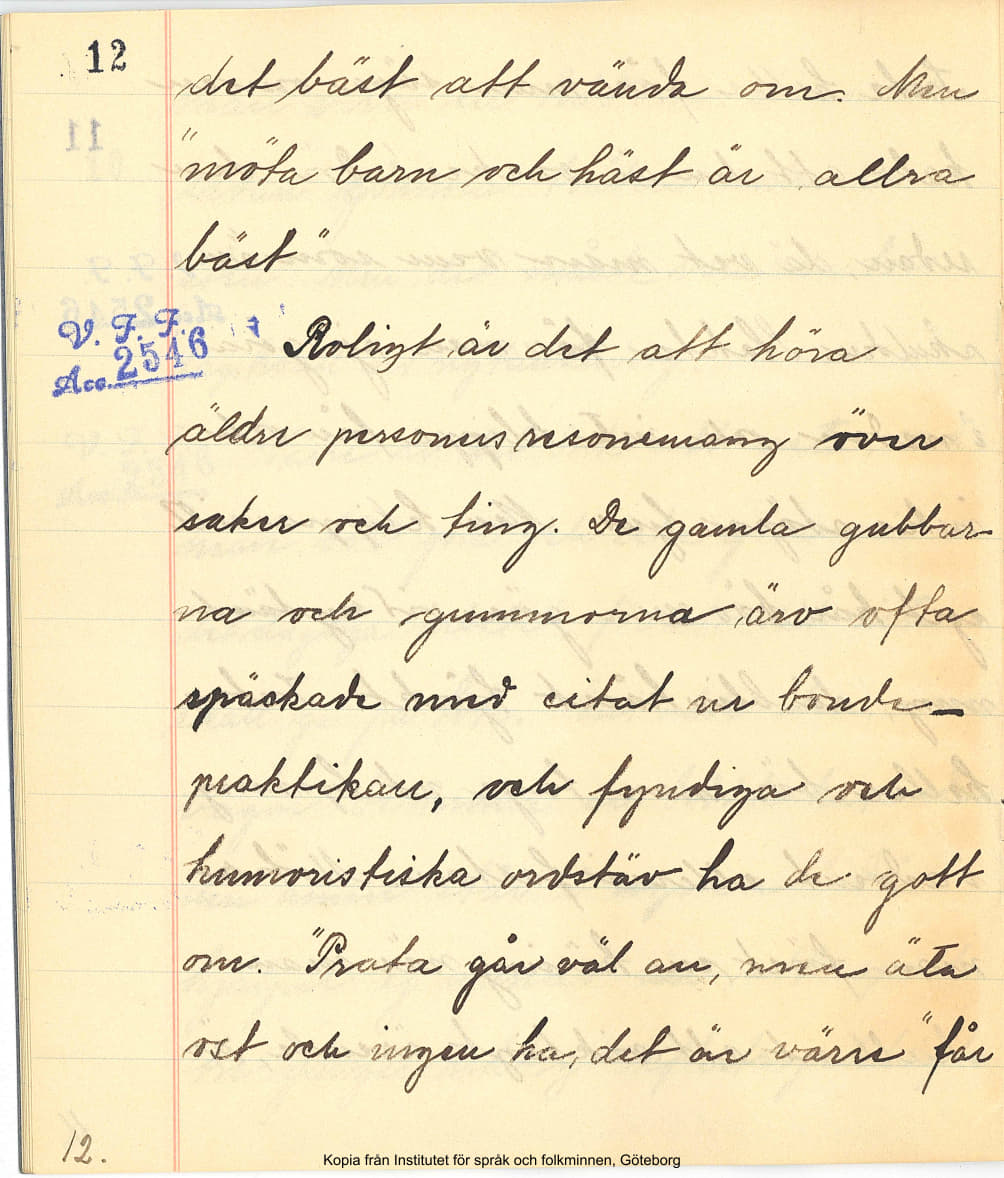 12
det bäst att vända om. Men
"möta barn och häst är allra
bäst"
V. F. F.
Acc. 2546
Roligt är det att höra
äldre personers resonemang över
saker och ting. De gamla gubbar-
na och gummorna äro ofta
späckade med citat ur bonde-
praktikan, och fyndiga och
humoristiska ordstäv ha de gott
om. "Prata går väl an, men äta
ost och ingen ha, det är värre" får
12.
Kopia från Institutet för språk och folkminnen, Göteborg